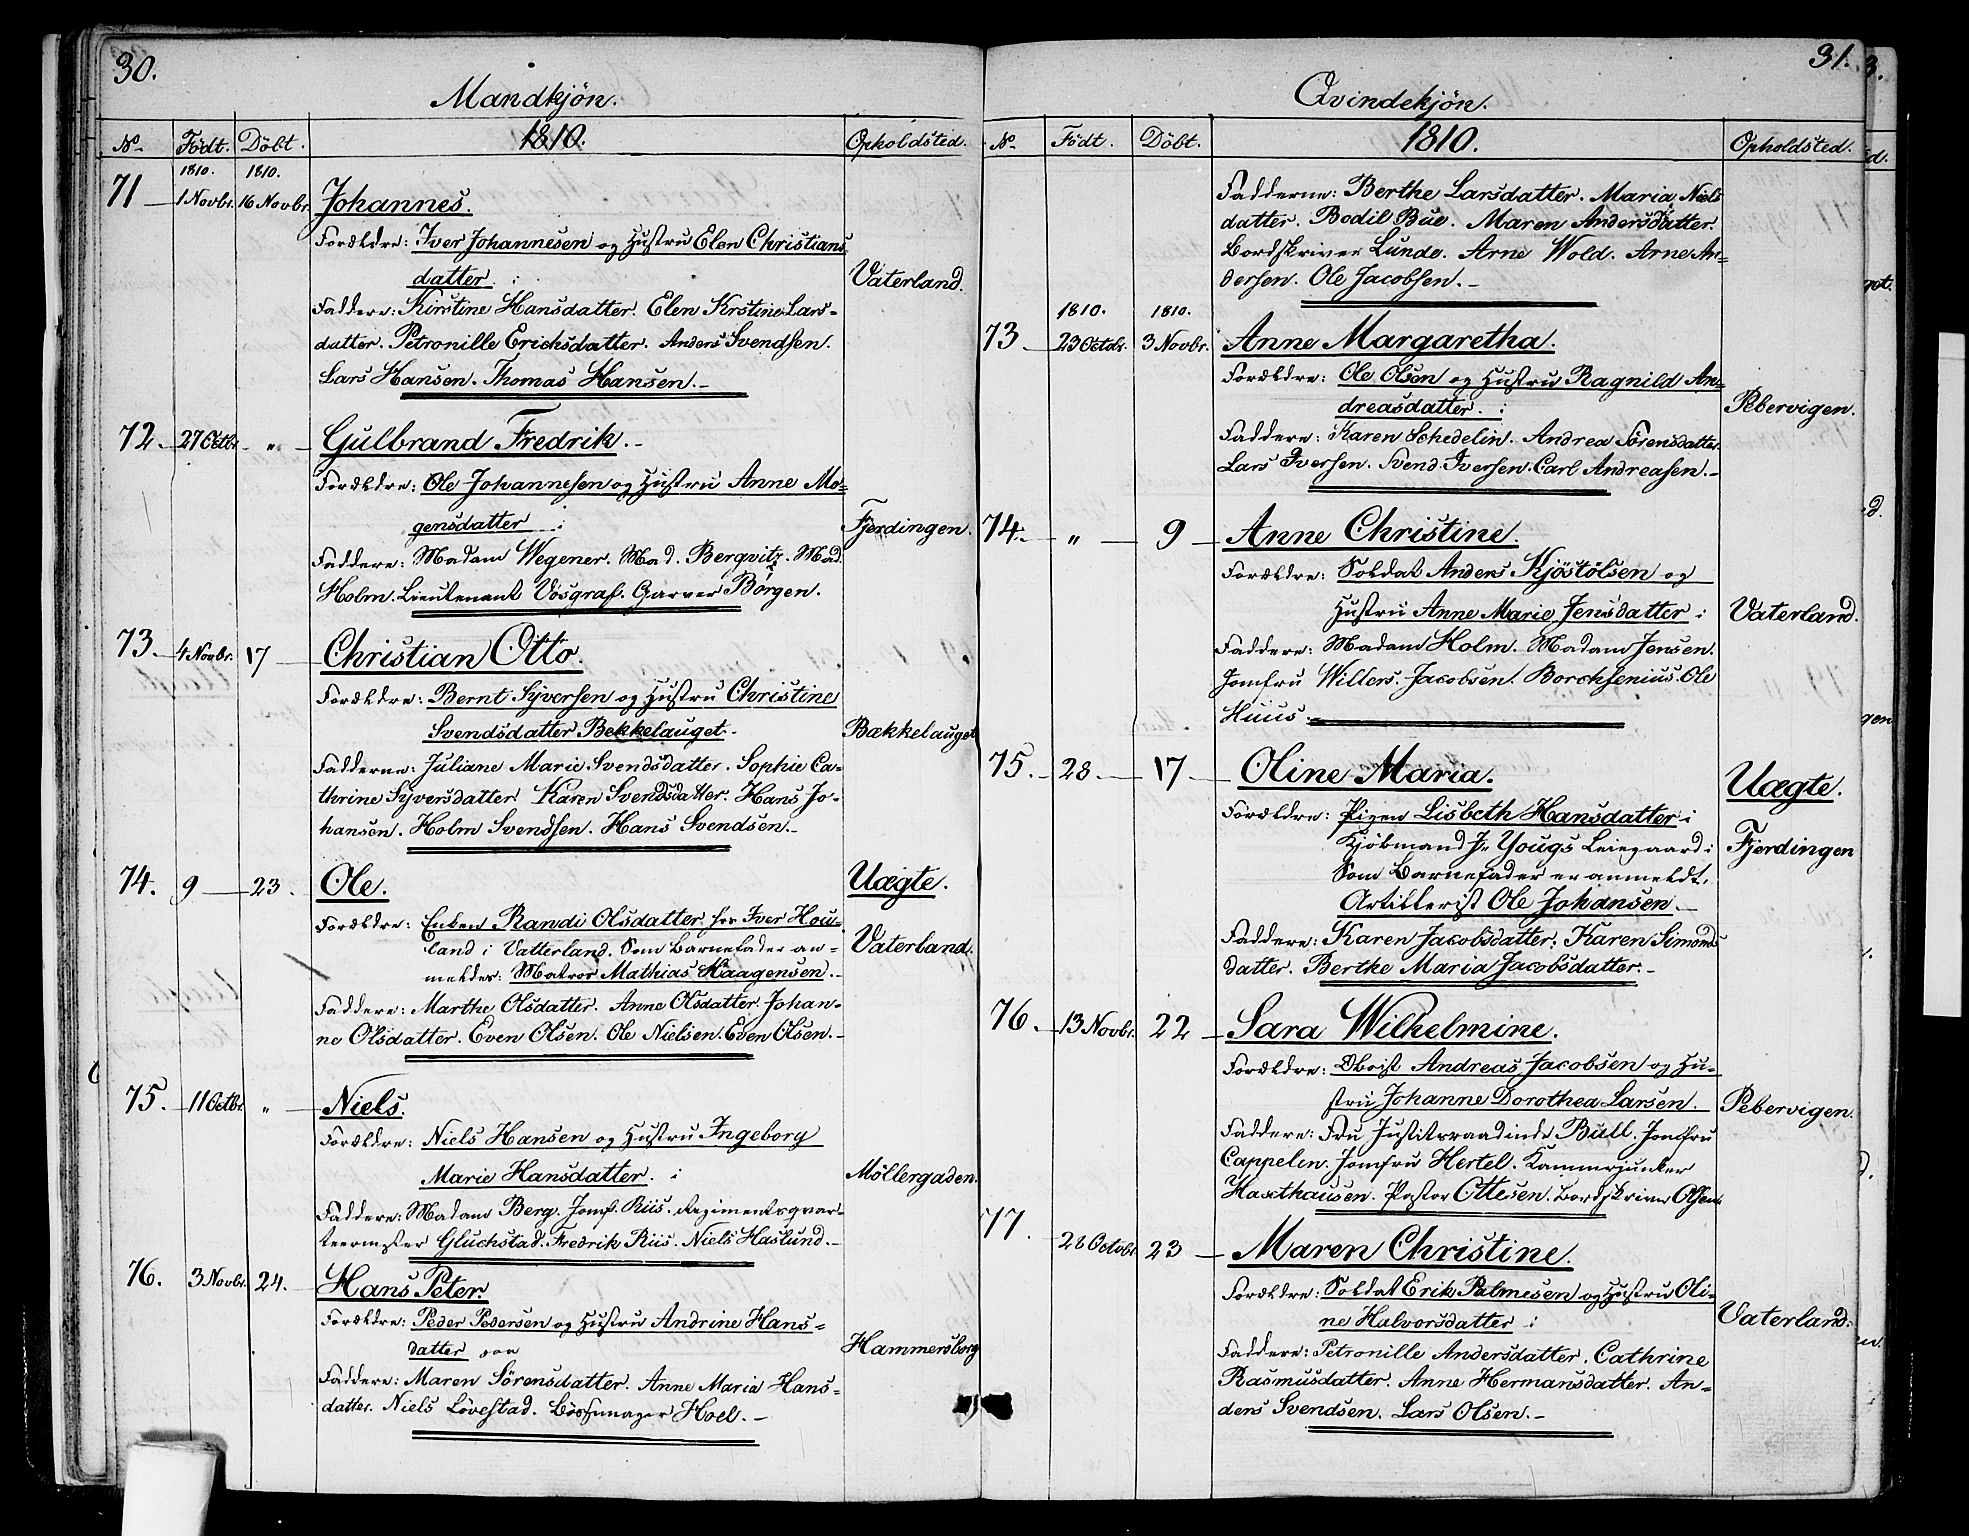 30.
Mandkjön.
No. Födt. Döbt. 1810. Opholdsted.
1810. 1810.
71 1 Novbr. 16 Novbr. Johannes.
Forældre: Iver Johannesen og Hustru Elen Christians
datter. i Vaterland.
Faddere: Kirstine Hansdatter. Elen Kirstine Lars-
datter. Petronille Erichsdatter. Anders Svendsen.
Lars Hansen. Thomas Hansen.
72 27 Octbr. " Gulbrand Fredrik.
Forældre: Ole Johannesen og Hustru Anne Mo-
gensdatter i Fjerdingen.
Faddere: Madam Wegener. Mad. Bergvitz. Mad.
Holm. Lieutenant Vosgraf. Garver Börgen.
73 4 Novbr. 17 Christian Otto.
Forældre: Bernt Syversen og Hustru Christine
Svendsdatter Bekkelauget. Bækkelauget
Fadderne: Juliane Marie Svendsdatter. Sophie Ca-
thrine Syversdatter Karen Svendsdatter. Hans Jo-
hansen. Holm Svendsen. Hans Svendsen.
74. 9 23. Ole. Uægte.
Forældre: Enken Randi Olsdatter for Iver Hou-
land i Vatterland. Som Barnefader an- Vaterland.
meldes: Matros Mathias Haagensen.
Faddere: Marthe Olsdatter. Anne Olsdatter. Johan-
ne Olsdatter. Even Olsen. Ole Nielsen. Even Olsen.
75. 11 Octbr. " Niels.
Forældre: Niels Hansen og Hustru Ingeborg
Marie Hansdatter. i Möllergaden.
Faddere: Madam Berg. Jomf. Riis. Regimentsqvar-
teermester Gluchstad. Fredrik Riis. Niels Haslund.
76. 3 Novbr. 24. Hans Peter.
Forældre: Peder Pedersen og Hustru Andrine Hans-
datter paa Hammersborg
Faddere: Maren Sörensdatter. Anne Maria Hans-
datter. Niels Lövestad. Bössemager Hoel.
31.
Qvindekjön.
No. Födt. Döbt. 1810. Opholdsted.
Fadderne: Berthe Larsdatter. Maria Niels
datter. Bodil Bue. Maren Andersdatter.
Bordskriver Lunde. Arne Wold. Arne An-
dersen. Ole Jacobsen.
1810. 1810.
73 23 Octbr. 3 Novbr. Anne Margaretha.
Forældre: Ole Olsen og Hustru Ragnild An-
dreasdatter. i Pebervigen.
Faddere: Karen Schedelin. Andrea Sörensdatter
Lars Iversen. Svend Iversen. Carl Andreasen.
74. " 9 Anne Christine.
Forældre: Soldat Anders Kjöstölsen og
Hustru Anne Marie Jensdatter i Vaterland.
Faddere: Madam Holm. Madam Jensen.
Jomfru Willers. Jacobsen. Borchsenius. Ole
Huus.
75. 28. 17 Oline Maria. Uægte.
Forældre: Pigen Lisbeth Hansdatter i
Kjöbmand Jr Yougs Leiegaard i Fjerdingen
Som Barnefader er anmeldt,
Artillerist Ole Johansen.
Faddere: Karen Jacobsdatter. Karen Simons
datter. Berthe Maria Jacobsdatter.
76. 13 Novbr. 22 Sara Wilhelmine.
Forældre: Oboist Andreas Jacobsen og Hu-
stru Johanne Dorothea Larsen. Pebervigen.
Faddere: Fru Justitsraadinde Bull. Jomfru
Cappelen. Jomfru Hertel. Kammerjunker
Haxthausen. Pastor Ottesen. Bordskriver Olsen
77. 28 Octobr. 23 Maren Christine.
Forældre: Soldat Erik Palmesen og Hustru Oli-
ne Halvorsdatter i Vaterland.
Faddere: Petronille Andersdatter. Cathrine
Rasmusdatter. Anne Hermansdatter. An-
ders Svendsen. Lars Olsen.